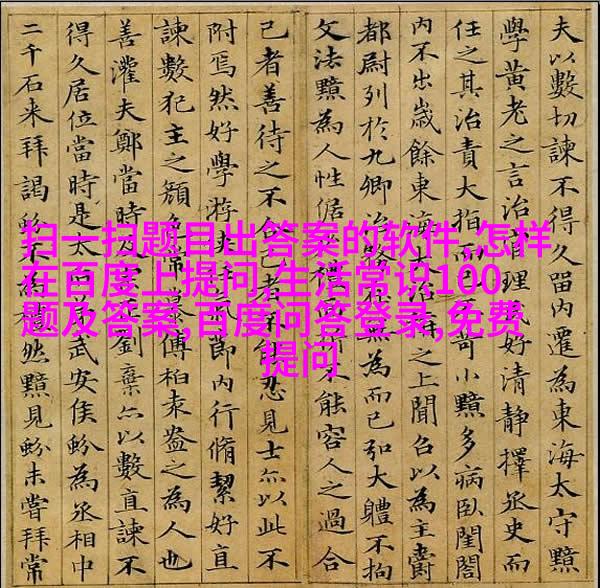 扫一扫题目出答案的软件,怎样
在百度上提问,生活常识100
题及答案,百度问答登录,免费
提问
夫以數切諫不得久留內遷為東海太守黯
學黃老之言治官理民好清靜擇丞史而
任之其治責大指而苛小黯多病臥閨閤
內不出歲餘東海大治之上聞召以為主爵
都尉列於九卿治務在無為而已弘大體不拘
文法黯為人性倨禮面折不能容人之過合
己者善待之不合己者不能忍見士亦以此不
附焉然好學游俠氣節內行脩絜好直
諫數犯主之顏色常慕傅柏袁盎之為人也
善灌夫鄭當時及正劉棄亦以數直諫不
得久居位當時是太后武安侯蚡為丞相中
二千石来拜謁蚡不為然黯見蚡未嘗拜常